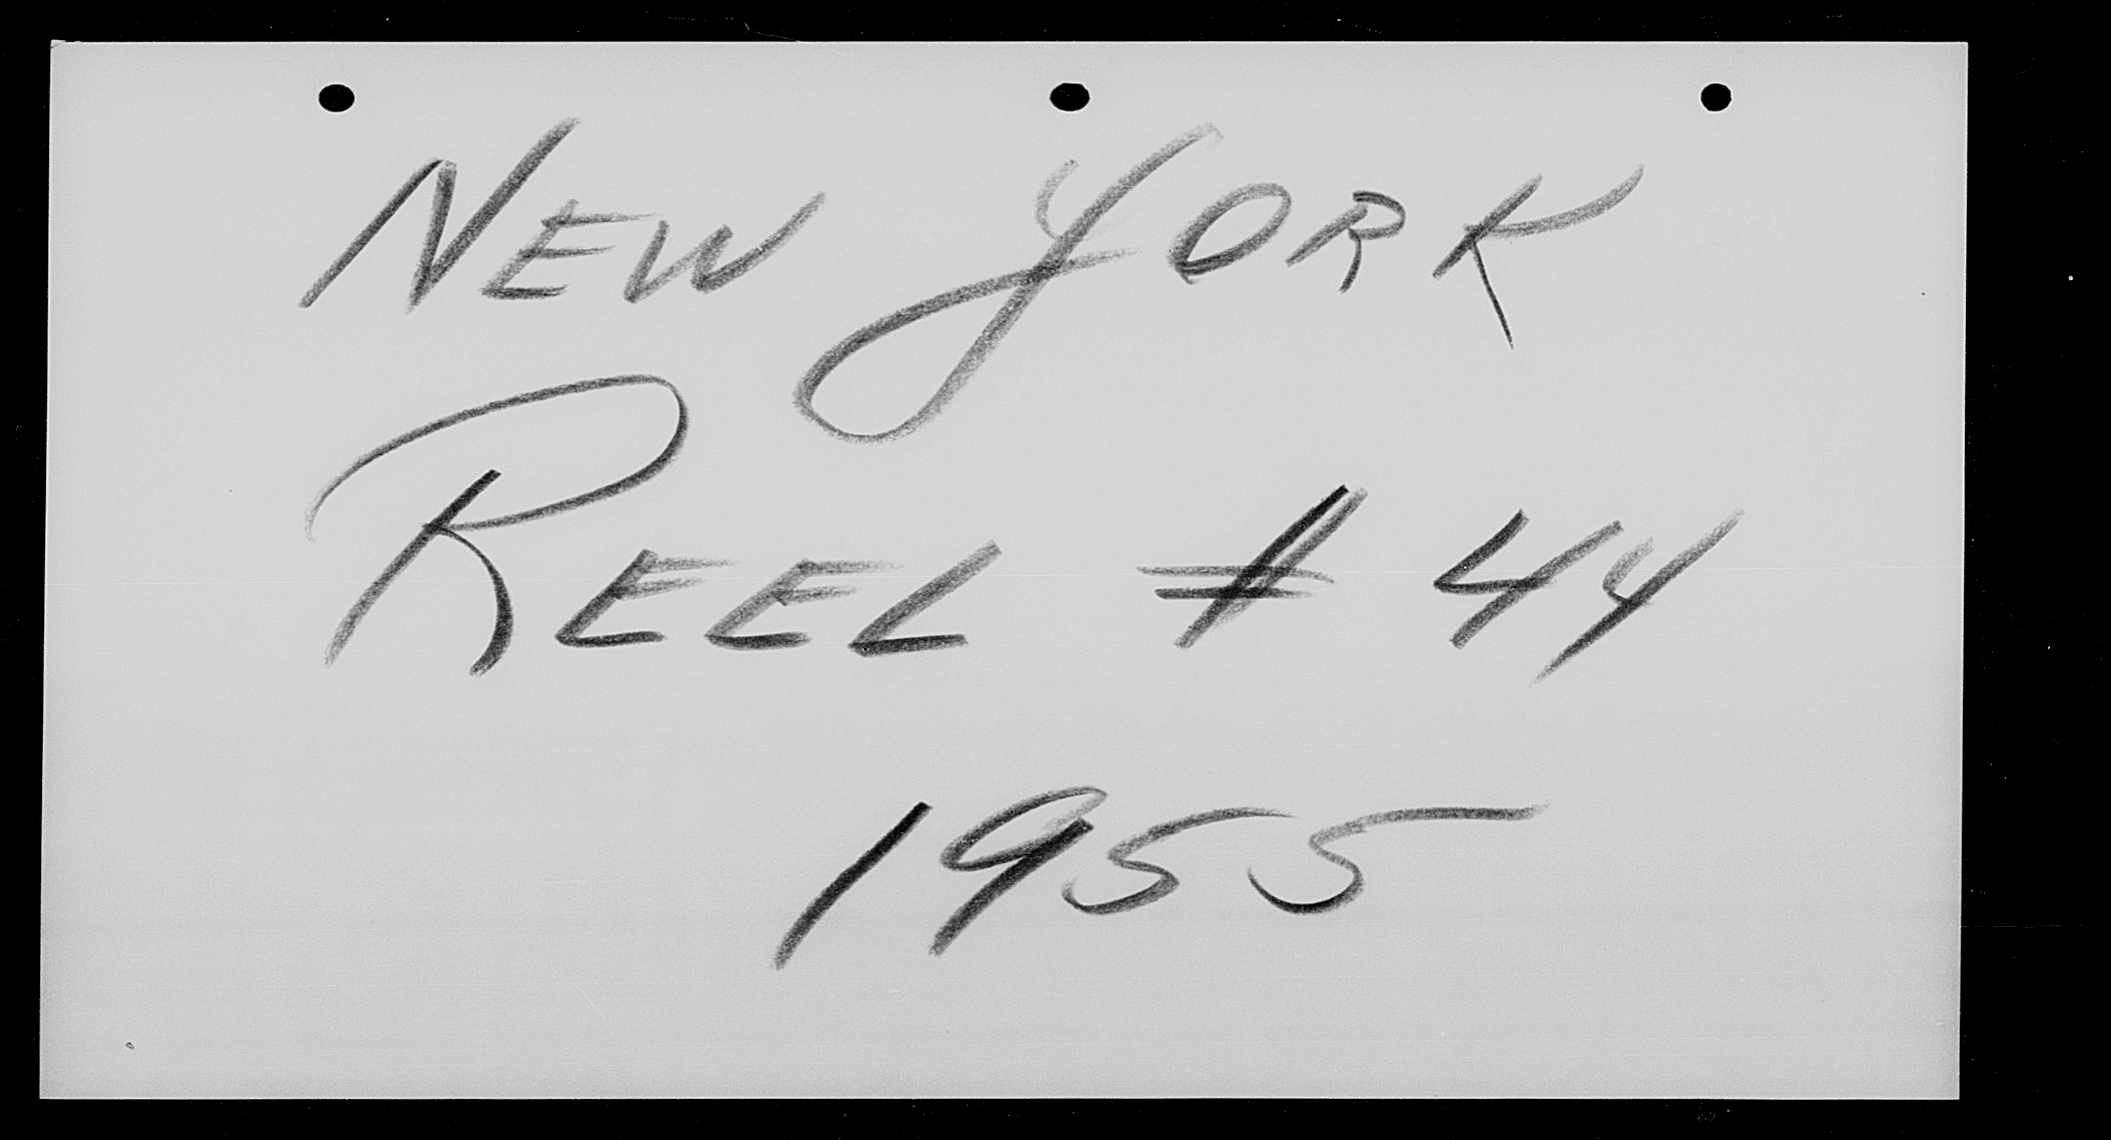 NEW YORK
REEL # 44
1955